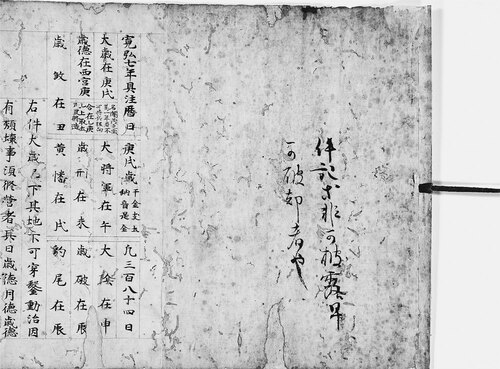 件記等非可披露早
可破却者也
寛弘七年具注暦日 庚戌歳 干金支土 納音是金 凡三百八十四日
大歳在庚戌 大将軍在午 大陰在申
歳徳在西宮庚 歳刑在未 歳破在辰
歳殺在丑 黄幡在戌 豹尾在辰
右件大歳已下其地不可穿鑿動治因
有頽壊事須修営者其日歳徳月徳歳徳